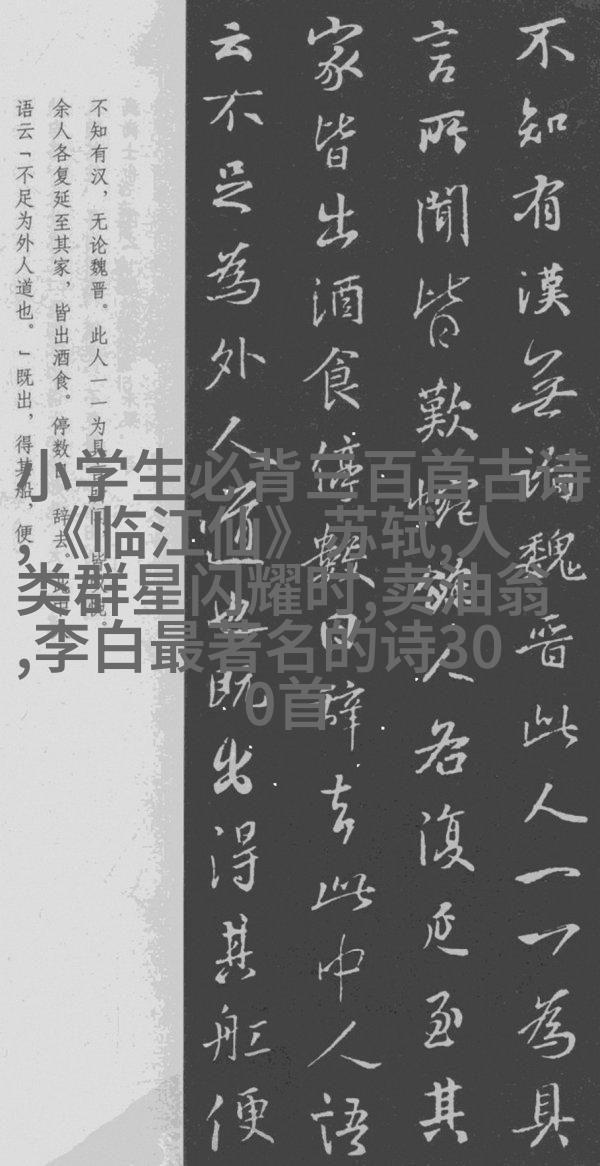 不知有漢無論魏晋此人一一為具
言所聞皆歎惋餘人各復延至其
家皆出酒食停數日辭去此中人語
云不足為外人道也既出得其舡便
不知有汉，无论魏晋。此人一一为具
余人各复延至其家，皆出酒食。停数
辞去
语云「不足为外人道也。」既出，得其船，便
小学生必背二百首古诗
,《临江仙》苏轼,人
类群星闪耀时,卖油翁
,李白最著名的诗30
0首